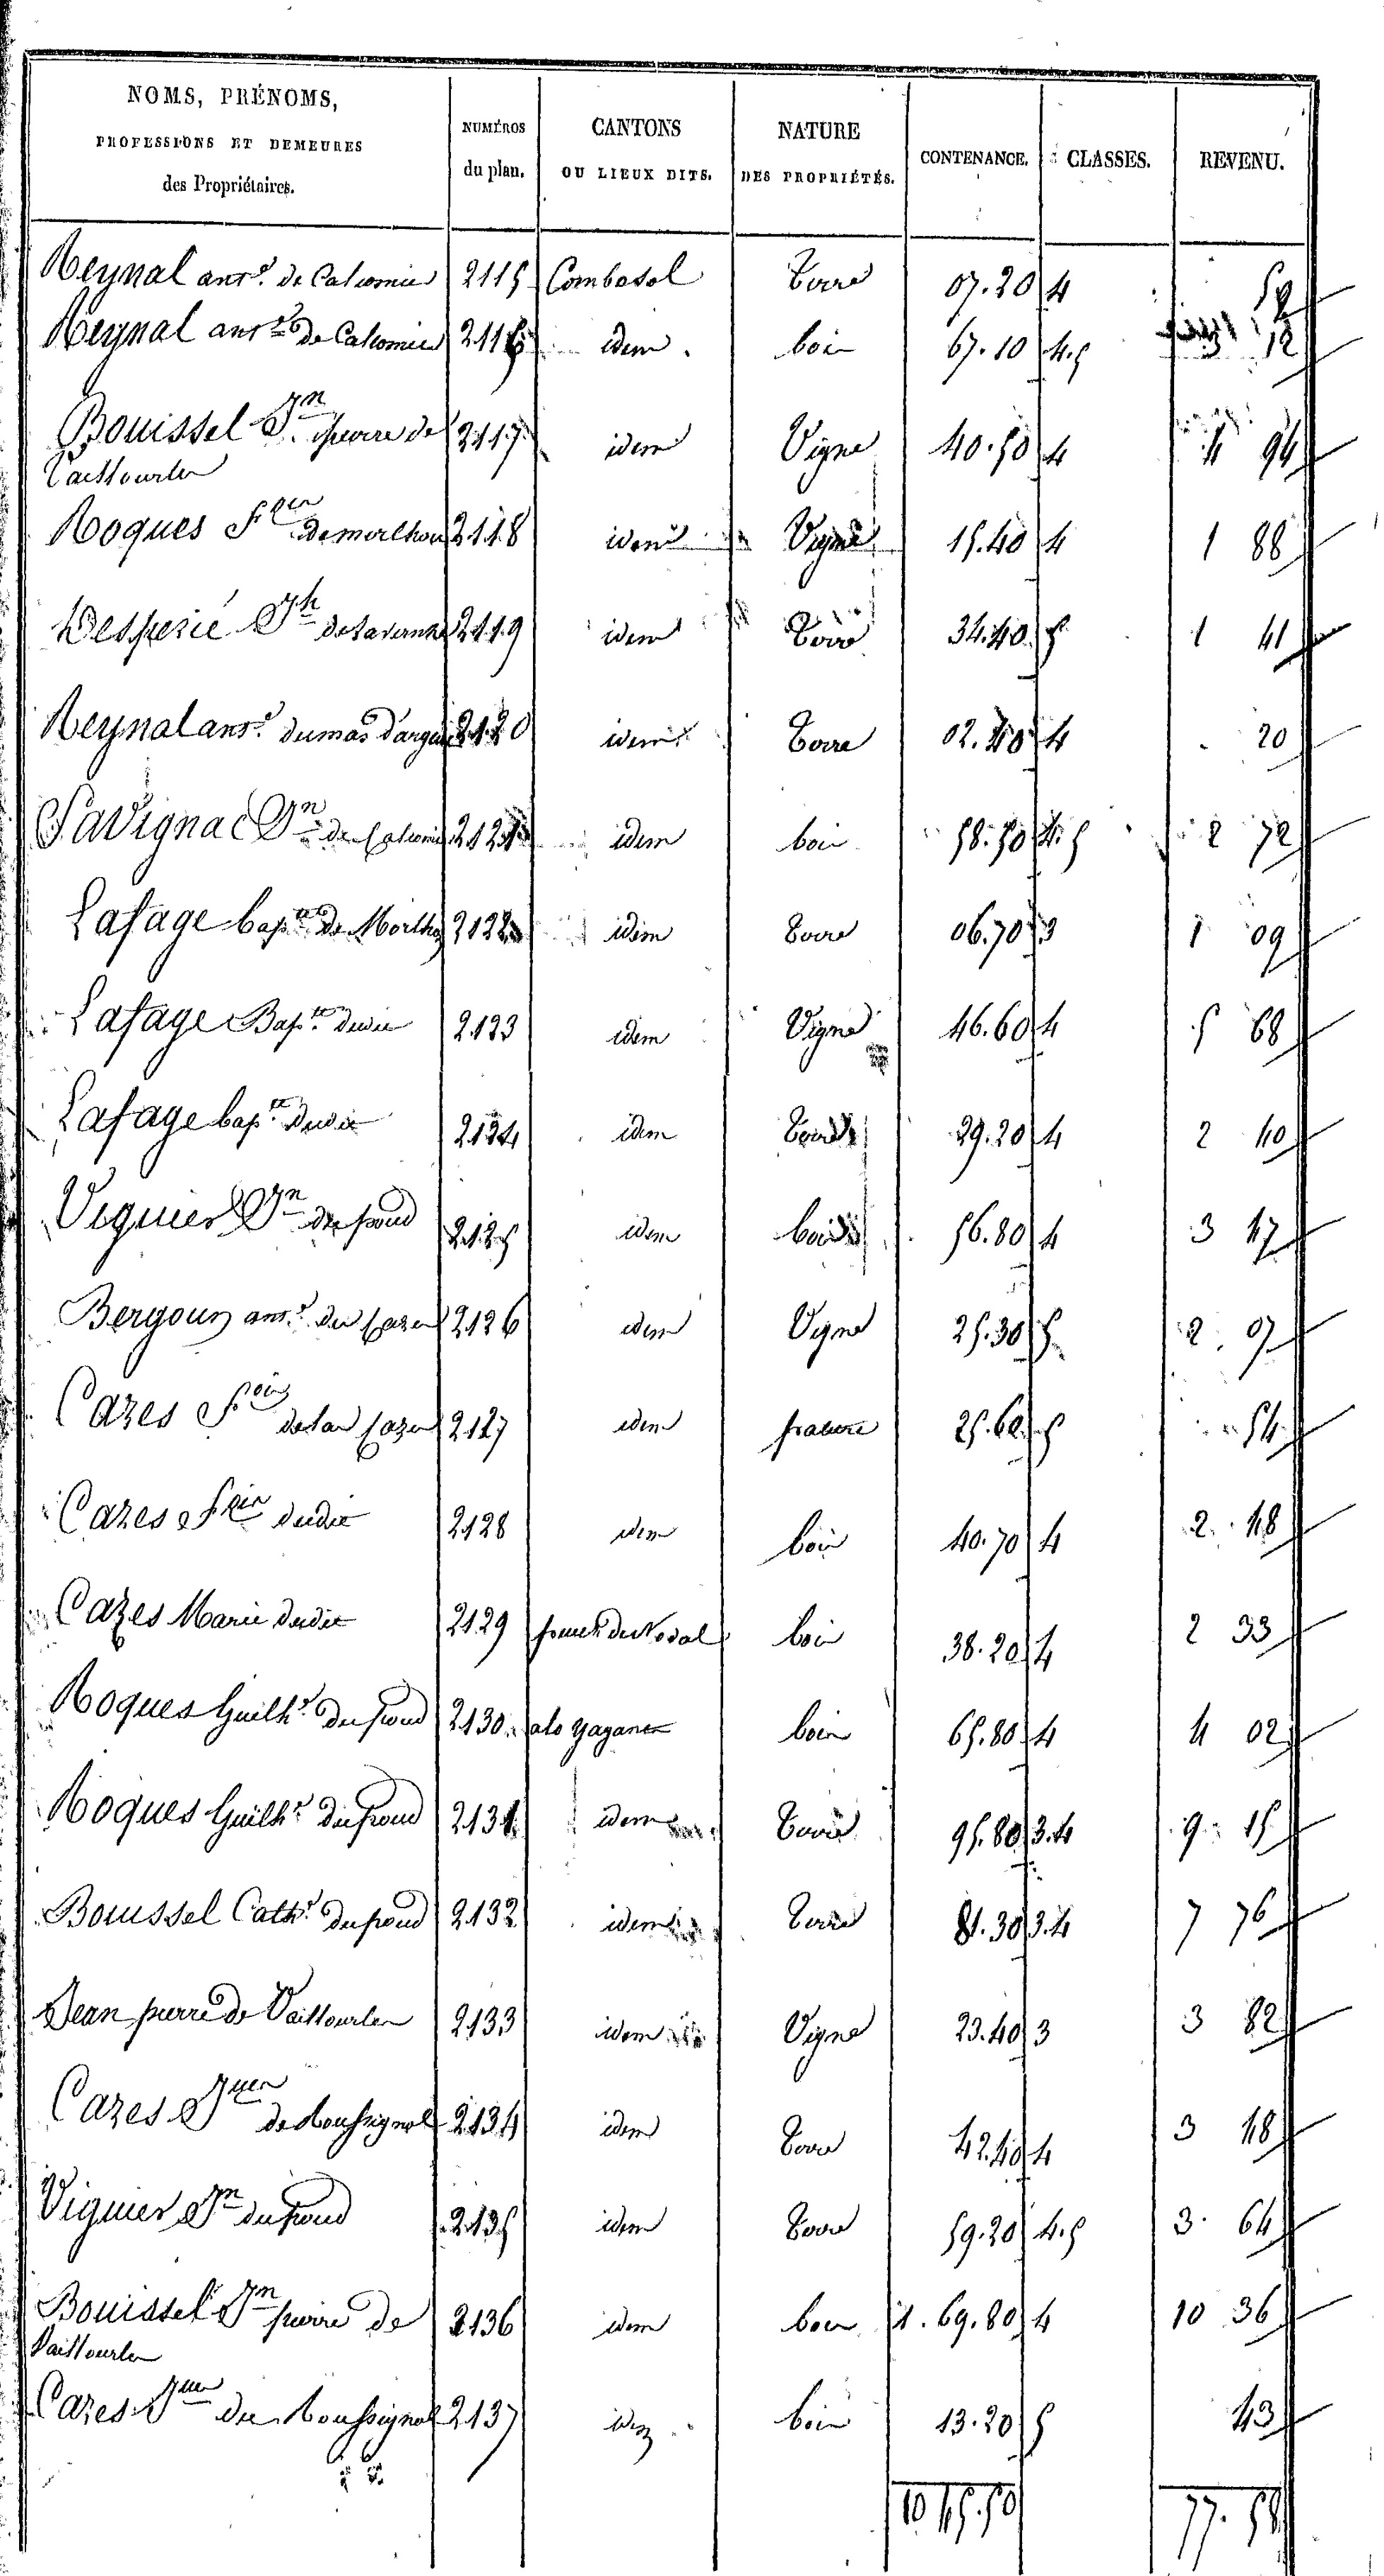 NOMS, PRÉNOMS,
PROFESSIONS ET DEMEURES
des Propriétaires.
NUMÉROS
du plan.
CANTONS
OU LIEUX DITS.
NATURE
DES PROPRIÉTÉS.
CONTENANCE.
CLASSES.
REVENU.
Reynal ant.e de Calcomier 2115 Combasol Terre 07.20 4 59
Reynal ant.e de Calcomier 2116 idem bois 67.10 4.5 3 12
Bouissel Jn pierre de 2117 idem Vigne 40.50 4 4 94
Vaillourles
Roques de morlhon 2118 idem Vigne 15.40 4 1 88
Jh 2119 idem Terre 34.40 5 1 41
Reynal ant.e du mas 2120 idem Terre 02.40 4 20
Savignac Jn de 2121 idem bois 58.50 4.5 2 72
Lafage bapte de Morlhon 2122 idem Terre 06.70 3 1 09
Lafage Bapte dudit 2123 idem Vigne 46.60 4 5 68
Lafage bapte dudit 2124 idem Terre 29.20 4 2 40
Viguier Jn du fraud 2125 idem bois 56.80 4 3 47
ant.e du 2126 idem Vigne 25.30 5 2 07
Cazes 2127 idem pature 25.60 5 54
Cazes dudit 2128 idem bois 40.70 4 2 48
Cazes Marie dudit 2129 bois 38.20 4 2 33
Roques Guilh.e du fraud 2130 bois 65.80 4 4 02
Roques Guilh.e du fraud 2131 idem Terre 95.80 3.4 9 15
Bouissel Cath.e du fraud 2132 idem Terre 81.30 3.4 7 76
Jean pierre de Vaillourles 2133 idem Vigne 23.40 3 3 82
Cazes de 2134 idem Terre 42.40 4 3 48
Viguier Jn du fraud 2135 idem Terre 59.20 4.5 3 64
Bouissel Jn pierre de 2136 idem bois 1.69.80 4 10 36
Vaillourles
Cazes de 2137 idem bois 13.20 5 43
10 45.50 77.58